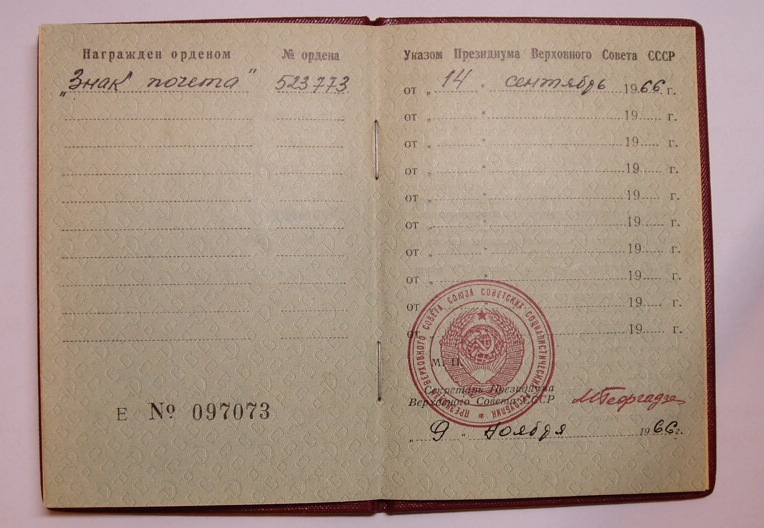 Награжден орденом № ордена
„Знак почета" 523773
Е № 097073
Указом Президиума Верховного Совета СССР
от „14" сентябрь 1966 г.
от „ " 19 г.
от „ " 19 г.
от „ " 19 г.
от „ " 19 г.
от „ " 19 г.
от „ " 19 г.
от „ " 19 г.
от „ " 19 г.
от „ " 19 г.
М. П.
Секретарь Президиума
Верховного Совета СССР
МГеоргадзе
„9" ноября 1966 г.
ПРЕЗИДИУМ ВЕРХОВНОГО СОВЕТА СОЮЗА СОВЕТСКИХ СОЦИАЛИСТИЧЕСКИХ РЕСПУБЛИК